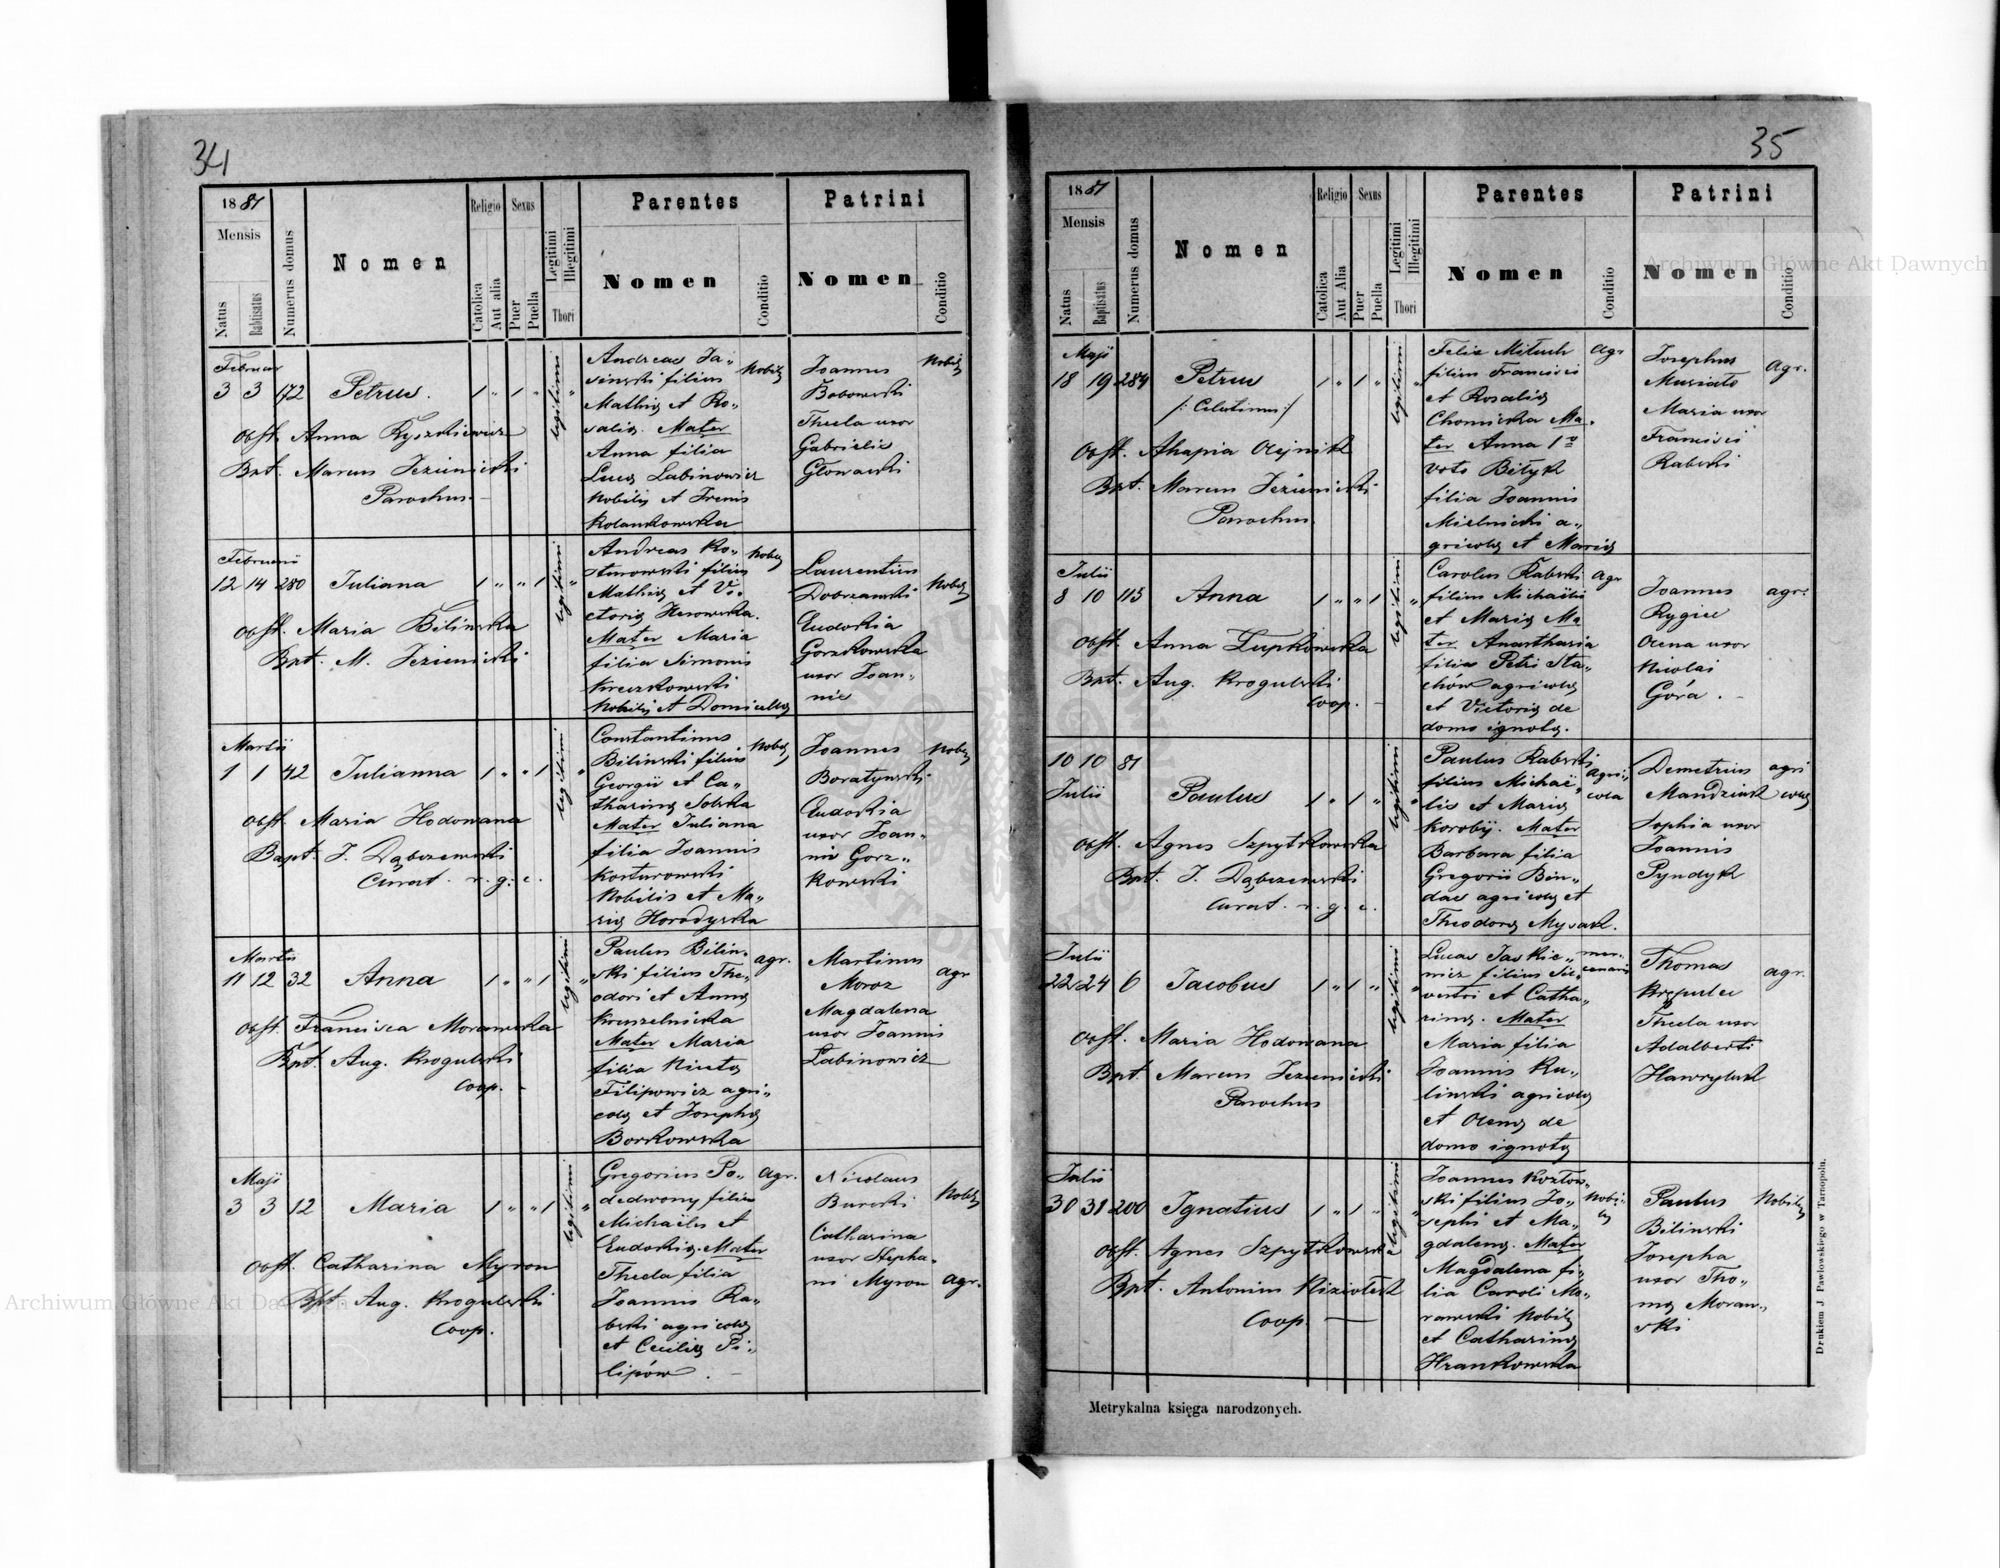 34
1881
Mensis
Natus
Babtisatus
Numerus domus
Nomen
Religio
Catolica
Aut alia
Sexus
Puer
Puella
Legitimi
Illegitimi
Thori
Parentes
Nomen
Conditio
Patrini
Nomen
Conditio
Februar
3 3 172 Petrus. 1 " 1 " legitimi "
Obst. Anna
Bpt. Marcus
Parochus
Andreas Ja-
sinski filius
Mathię et Ro-
salię. Mater
Anna filia
Lucę Labinowicz
Nobilis et Irenis
Nobilis
Joannes
Bobowski
Thecla uxor
Gabrielis
Głowacki
Nobilis
Februarii
12 14 280 Juliana 1 " " 1 legitimi "
Obst. Maria Bilinska
Bpt. M.
Andreas Ko-
sturowski filius
Mathię et Vi-
ctorię
Mater Maria
filia Simonis
Kreczkowski
Nobilis et Domicellę
Nobilis
Laurentius
Dobrzanski
Eudokia
Gorzkowska
uxor Joan-
nis
Nobilis
Martii
1 1 42 Julianna 1 " " 1 legitimi "
Obst. Maria Hodowana
Bapt. J. Dąbczewski
Curat. r. g. c.
Constantinus
Bilinski filius
Georgii et Ca-
tharinę Solska
Mater Juliana
filia Joannis
Kosturowski
Nobilis et Ma-
rię Horodyska
Nobilis
Joannes
Boratynski
Eudokia
uxor Joan-
nis Gorz-
kowski
Nobilis
Martii
11 12 32 Anna 1 " " 1 legitimi "
Obst. Francisca Morawska
Bpt. Aug. Krogulski
Coop.
Paulus Bilin-
ski filius The-
odori et Annę
Mater Maria
filia Nicetę
Filipowicz agri-
colę et Josephę
Borkowska
agr.
Martinus
Moroz
Magdalena
uxor Joannis
Labinowicz
agr
Maji
3 3 12 Maria 1 " " 1 legitimi "
Obst. Catharina Myron
Bpt. Aug. Krogulski
Coop.
Gregorius Po-
dedworny filius
Michaëlis et
Eudokię. Mater
Thecla filia
Joannis Ra-
bski agricolę
et Cecilię Pi-
lipów.
Agr.
Nicolaus
Burski
Catharina
uxor Stepha-
ni Myron
Nobilis
agr.
35
1881
Mensis
Natus
Baptisatus
Numerus domus
Nomen
Religio
Catolica
Aut Alia
Sexus
Puer
Puella
Legitimi
Illegitimi
Thori
Parentes
Nomen
Conditio
Patrini
Nomen
Conditio
Maji
18 19 284 Petrus 1 " 1 " legitimi "
/: Celestinus :/
Obst. Ahapia Olejnik
Bpt. Marcus
Parochus
Felix
filius Francisci
et Rosalię
Chomicka Ma-
ter Anna 1o
voto
filia Joannis
Mielnicki a-
gricolę et Marię
Agr
Josephus
Musiało
Maria uxor
Francisci
Rabski
Agr.
Julii
8 10 115 Anna 1 " " 1 legitimi "
Obst. Anna Łupkowska
Bpt. Aug. Krogulski
Coop.
Carolus Rabski
filius Michaëlis
et Marię Ma
ter Anasthasia
filia Petri Sta-
chów agricolę
et Victorię de
domo ignotę.
Agr
Joannes
Rygiel
Olena uxor
Nicolai
Góra.
agr.
10 10 81
Julii
Paulus 1 " 1 " legitimi "
Obst. Agnes Szpytkowska
Bpt. J. Dąbczewski
Curat. r. g. c.
Paulus Rabski
filius Michaë-
lis et Marię
Korobij. Mater
Barbara filia
Gregorii Bin-
das agricolę et
Theodorę
agri-
cola
Demetrius
Mandziuk
Sophia uxor
Joannis
Pyndyk
agri
colę
Julii
22 24 6 Jacobus 1 " 1 " legitimi "
Obst. Maria Hodowana
Bpt. Marcus
Parochus
Lucas Jaskie-
wicz filius Sil-
vestri et Catha-
rinę. Mater
Maria filia
Joannis Ku-
linski agricolę
et Olenę de
domo ignotę
mer-
cenarius
Thomas
Thecla uxor
Adalberti
Hawryluk
agr.
Julii
30 31 200 Ignatius 1 " 1 " legitimi "
Obst. Agnes Szpytkowska
Bpt. Antonius
Coop.
Joannes Kozłow-
ski filius Jo-
sephi et Ma-
gdalenę. Mater
Magdalena fi-
lia Caroli Mo-
rawski Nobilis
et Catharinę
Hrankowska
Nobi-
lis
Paulus
Bilinski
Josepha
uxor Tho-
mę Moraw-
ski
Nobilis
Metrykalna księga narodzonych.
Drukiem J. Pawłowskiego w Tarnopolu.
Archiwum Główne Akt Dawnych
Archiwum Główne Akt Dawnych